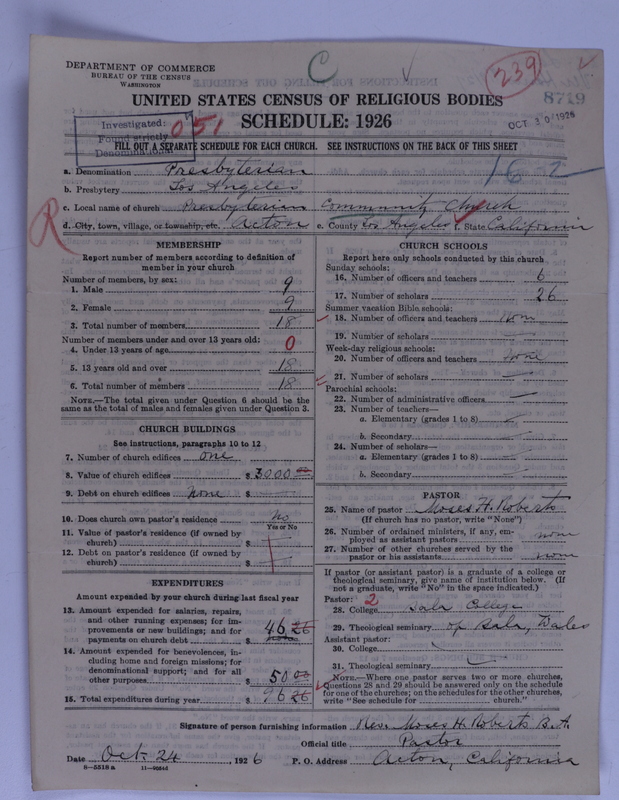 C
239
8719
DEPARTMENT OF COMMERCE
BUREAU OF THE CENSUS
WASHINGTON
UNITED STATES CENSUS OF RELIGIOUS BODIES
SCHEDULE: 1926
OCT 30 1926
Investigated:
Found strictly
Denominational
051
FILL OUT A SEPARATE SCHEDULE FOR EACH CHURCH. SEE INSTRUCTIONS ON THE BACK OF THIS SHEET
162
R
a. Denomination Presbyterian
b. Presbytery Los Angeles
c. Local name of church Presbyterian Community Church
d. City, town, village, or township, etc. Acton e. County Los Angeles f. State California
MEMBERSHIP
Report number of members according to definition of
member in your church
Number of members, by sex:
1. Male 9
2. Female 9
3. Total number of members 18
Number of members under and over 13 years old:
4. Under 13 years of age 0
5. 13 years old and over 18
6. Total number of members 18
NOTE.—The total given under Question 6 should be the
same as the total of males and females given under Question 3.
CHURCH BUILDINGS
See instructions, paragraphs 10 to 12
7. Number of church edifices one
8. Value of church edifices $ 3000 00
9. Debt on church edifices None $
10. Does church own pastor's residence no
Yes or No
11. Value of pastor's residence (if owned by
church) $
12. Debt on pastor's residence (if owned by
church) $
EXPENDITURES
Amount expended by your church during last fiscal year
13. Amount expended for salaries, repairs,
and other running expenses; for im-
provements or new buildings; and for
payments on church debt $ 46 26
14. Amount expended for benevolences, in-
cluding home and foreign missions; for
denominational support; and for all
other purposes $ 50 00
15. Total expenditures during year $ 96 26
CHURCH SCHOOLS
Report here only schools conducted by this church
Sunday schools:
16. Number of officers and teachers 6
17. Number of scholars 26
Summer vacation Bible schools:
18. Number of officers and teachers none
19. Number of scholars
Week-day religious schools:
20. Number of officers and teachers none
21. Number of scholars
Parochial schools:
22. Number of administrative officers
23. Number of teachers—
a. Elementary (grades 1 to 8)
b. Secondary
24. Number of scholars—
a. Elementary (grades 1 to 8)
b. Secondary
PASTOR
25. Name of pastor Moses H. Roberts
(If church has no pastor, write "None")
26. Number of ordained ministers, if any, em-
ployed as assistant pastors none
27. Number of other churches served by the
pastor or his assistants none
If pastor (or assistant pastor) is a graduate of a college or
theological seminary, give name of institution below. (If
not a graduate, write "No" in the space indicated.)
Pastor: 2
28. College Bala College
29. Theological seminary of Bala, Wales
Assistant pastor:
30. College
31. Theological seminary
NOTE.—Where one pastor serves two or more churches,
Questions 28 and 29 should be answered only on the schedule
for one of the churches; on the schedules for the other churches,
write "See schedule for church."
Signature of person furnishing information Rev. Moses H. Roberts B.A.
Official title Pastor
Date Oct. 24, 1926 P. O. Address Acton, California
8—5518 a